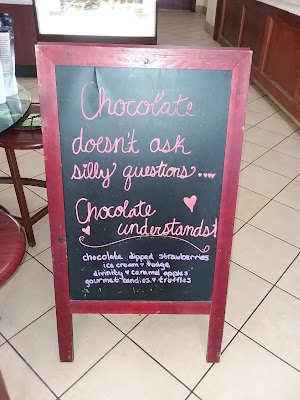 Chocolate
doesn't ask
silly questions....
Chocolate
understands!
chocolate dipped strawberries
ice cream ♥ fudge
divinity ♥ caramel apples
gourmet candies ♥ truffles